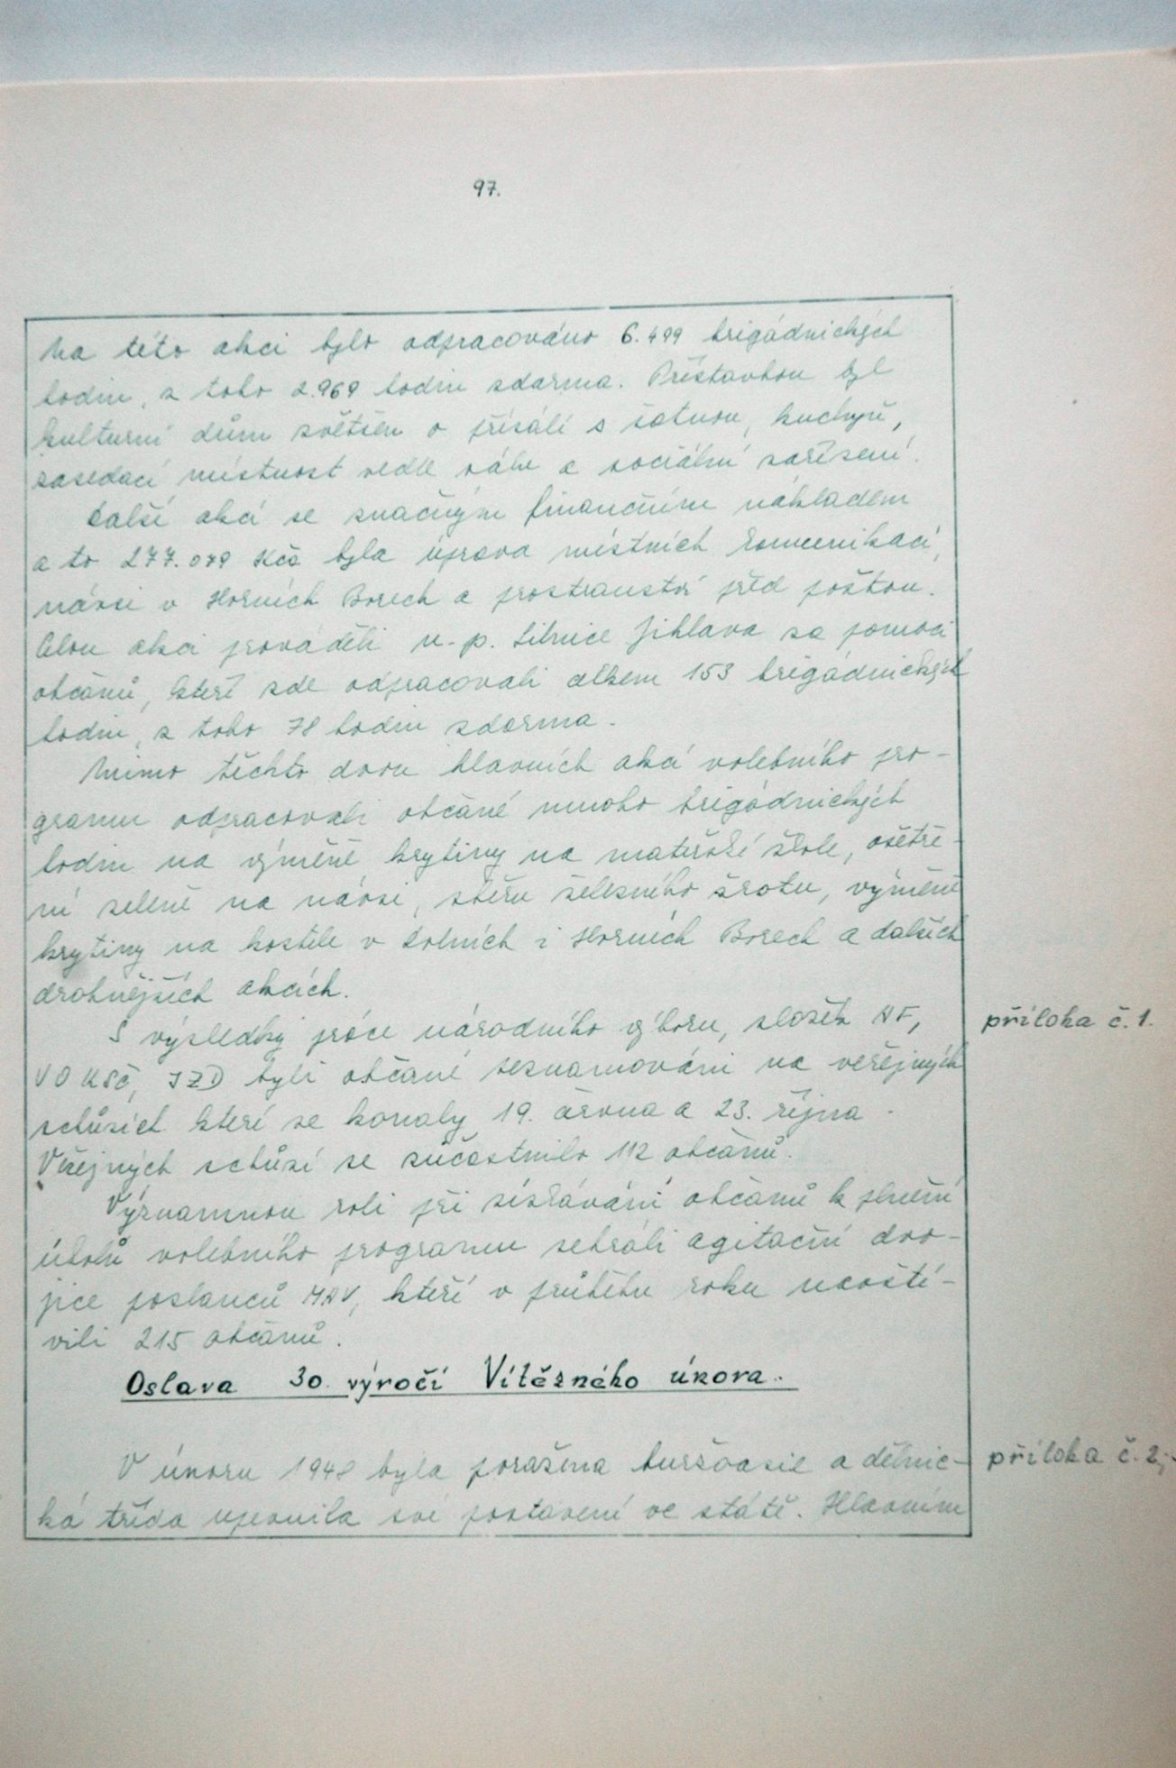 97.
Na této akci bylo odpracováno 6.499 brigádnických
hodin, z toho 2.969 hodin zdarma. Přístavbou byl
kulturní dům zvětšen o přísálí s šatnou, kuchyň,
zasedací místnost vedle sálu a sociální zařízení.
Další akcí se značným finančním nákladem
a to 277.079 Kčs byla úprava místních komunikací,
návsi v Horních Borech a prostranství před poštou.
Celou akci prováděli n.p. Silnice Jihlava za pomoci
občanů, kteří zde odpracovali celkem 153 brigádnických
hodin, z toho 78 hodin zdarma.
Mimo těchto dvou hlavních akcí volebního pro-
gramu odpracovali občané mnoho brigádnických
hodin na výměně krytiny na mateřské škole, ošetře-
ní zeleně na návsi, sběru železného šrotu, výměně
krytiny na kostele v Dolních i Horních Borech a dalších
drobnějších akcích.
S výsledky práce národního výboru, složek NF,
VO KSČ, JZD byli občané seznamováni na veřejných
schůzích které se konaly 19. června a 23. října.
Veřejných schůzí se zúčastnilo 112 občanů.
Významnou roli při získávání občanů k plnění
úkolů volebního programu sehráli agitační dvo-
jice poslanců MNV, kteří v průběhu roku navští-
vili 215 občanů.
Oslava 30. výročí Vítězného února.
V únoru 1948 byla poražena buržoasie a dělnic-
ká třída upevnila své postavení ve státě. Hlavním
příloha č. 1.
příloha č. 2,